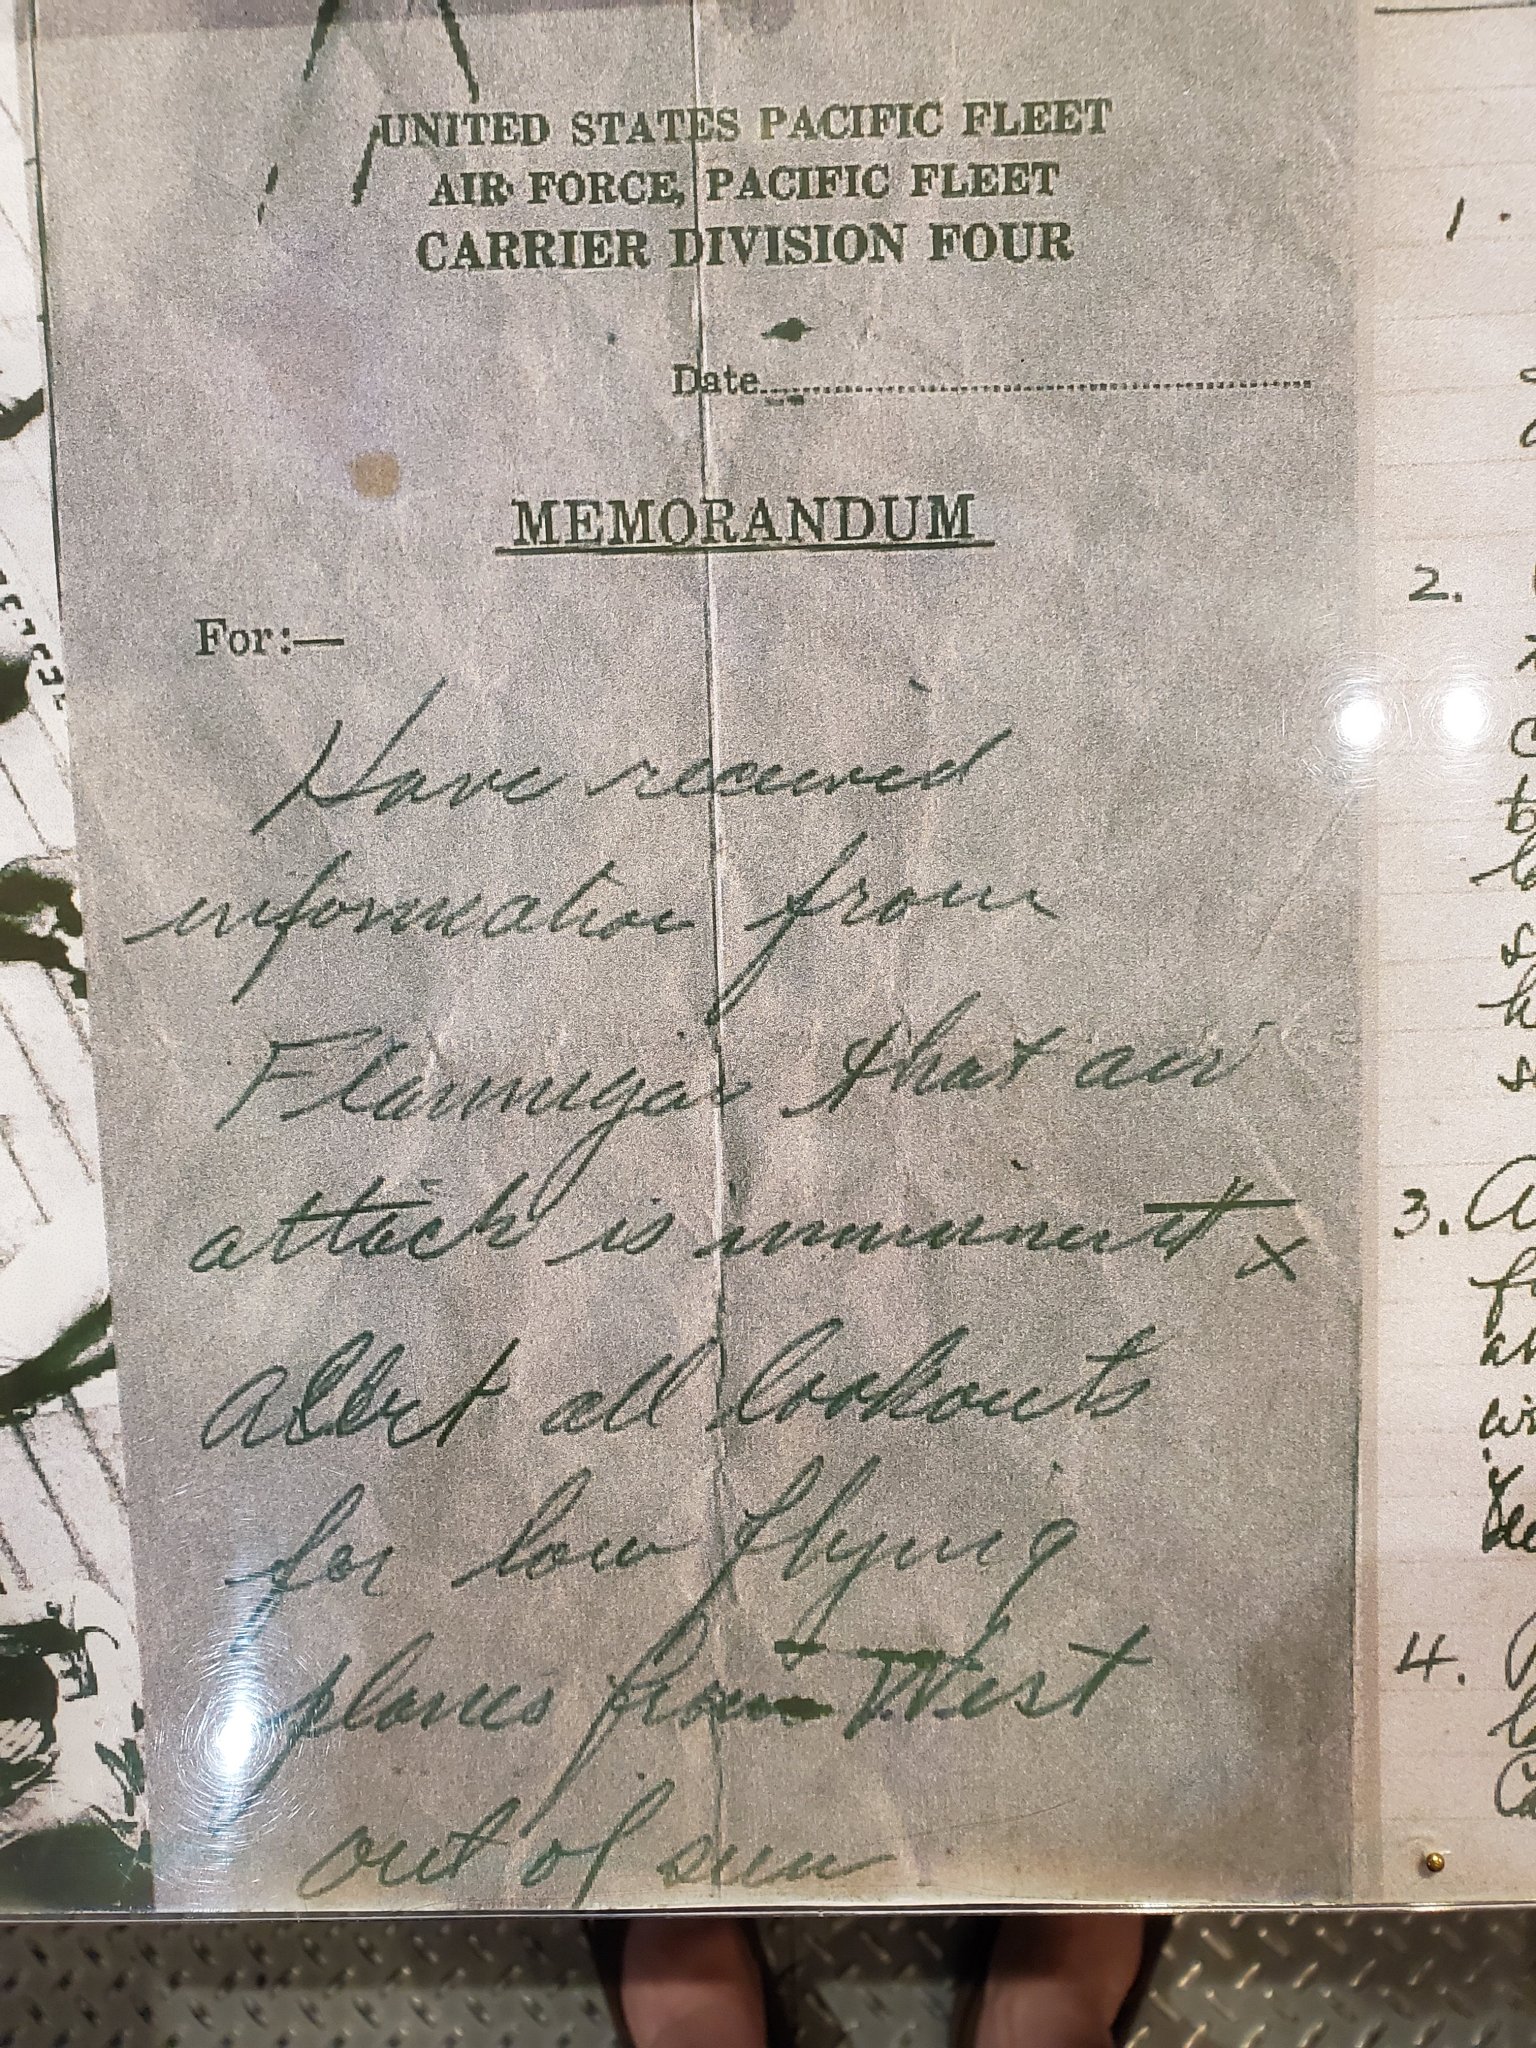 UNITED STATES PACIFIC FLEET
AIR FORCE, PACIFIC FLEET
CARRIER DIVISION FOUR
Date
MEMORANDUM
For:—
Have received
information from
that air
attack is imminent x
Alert all lookouts
for low flying
planes from West
out of sun
1.
2.
3. A
4.